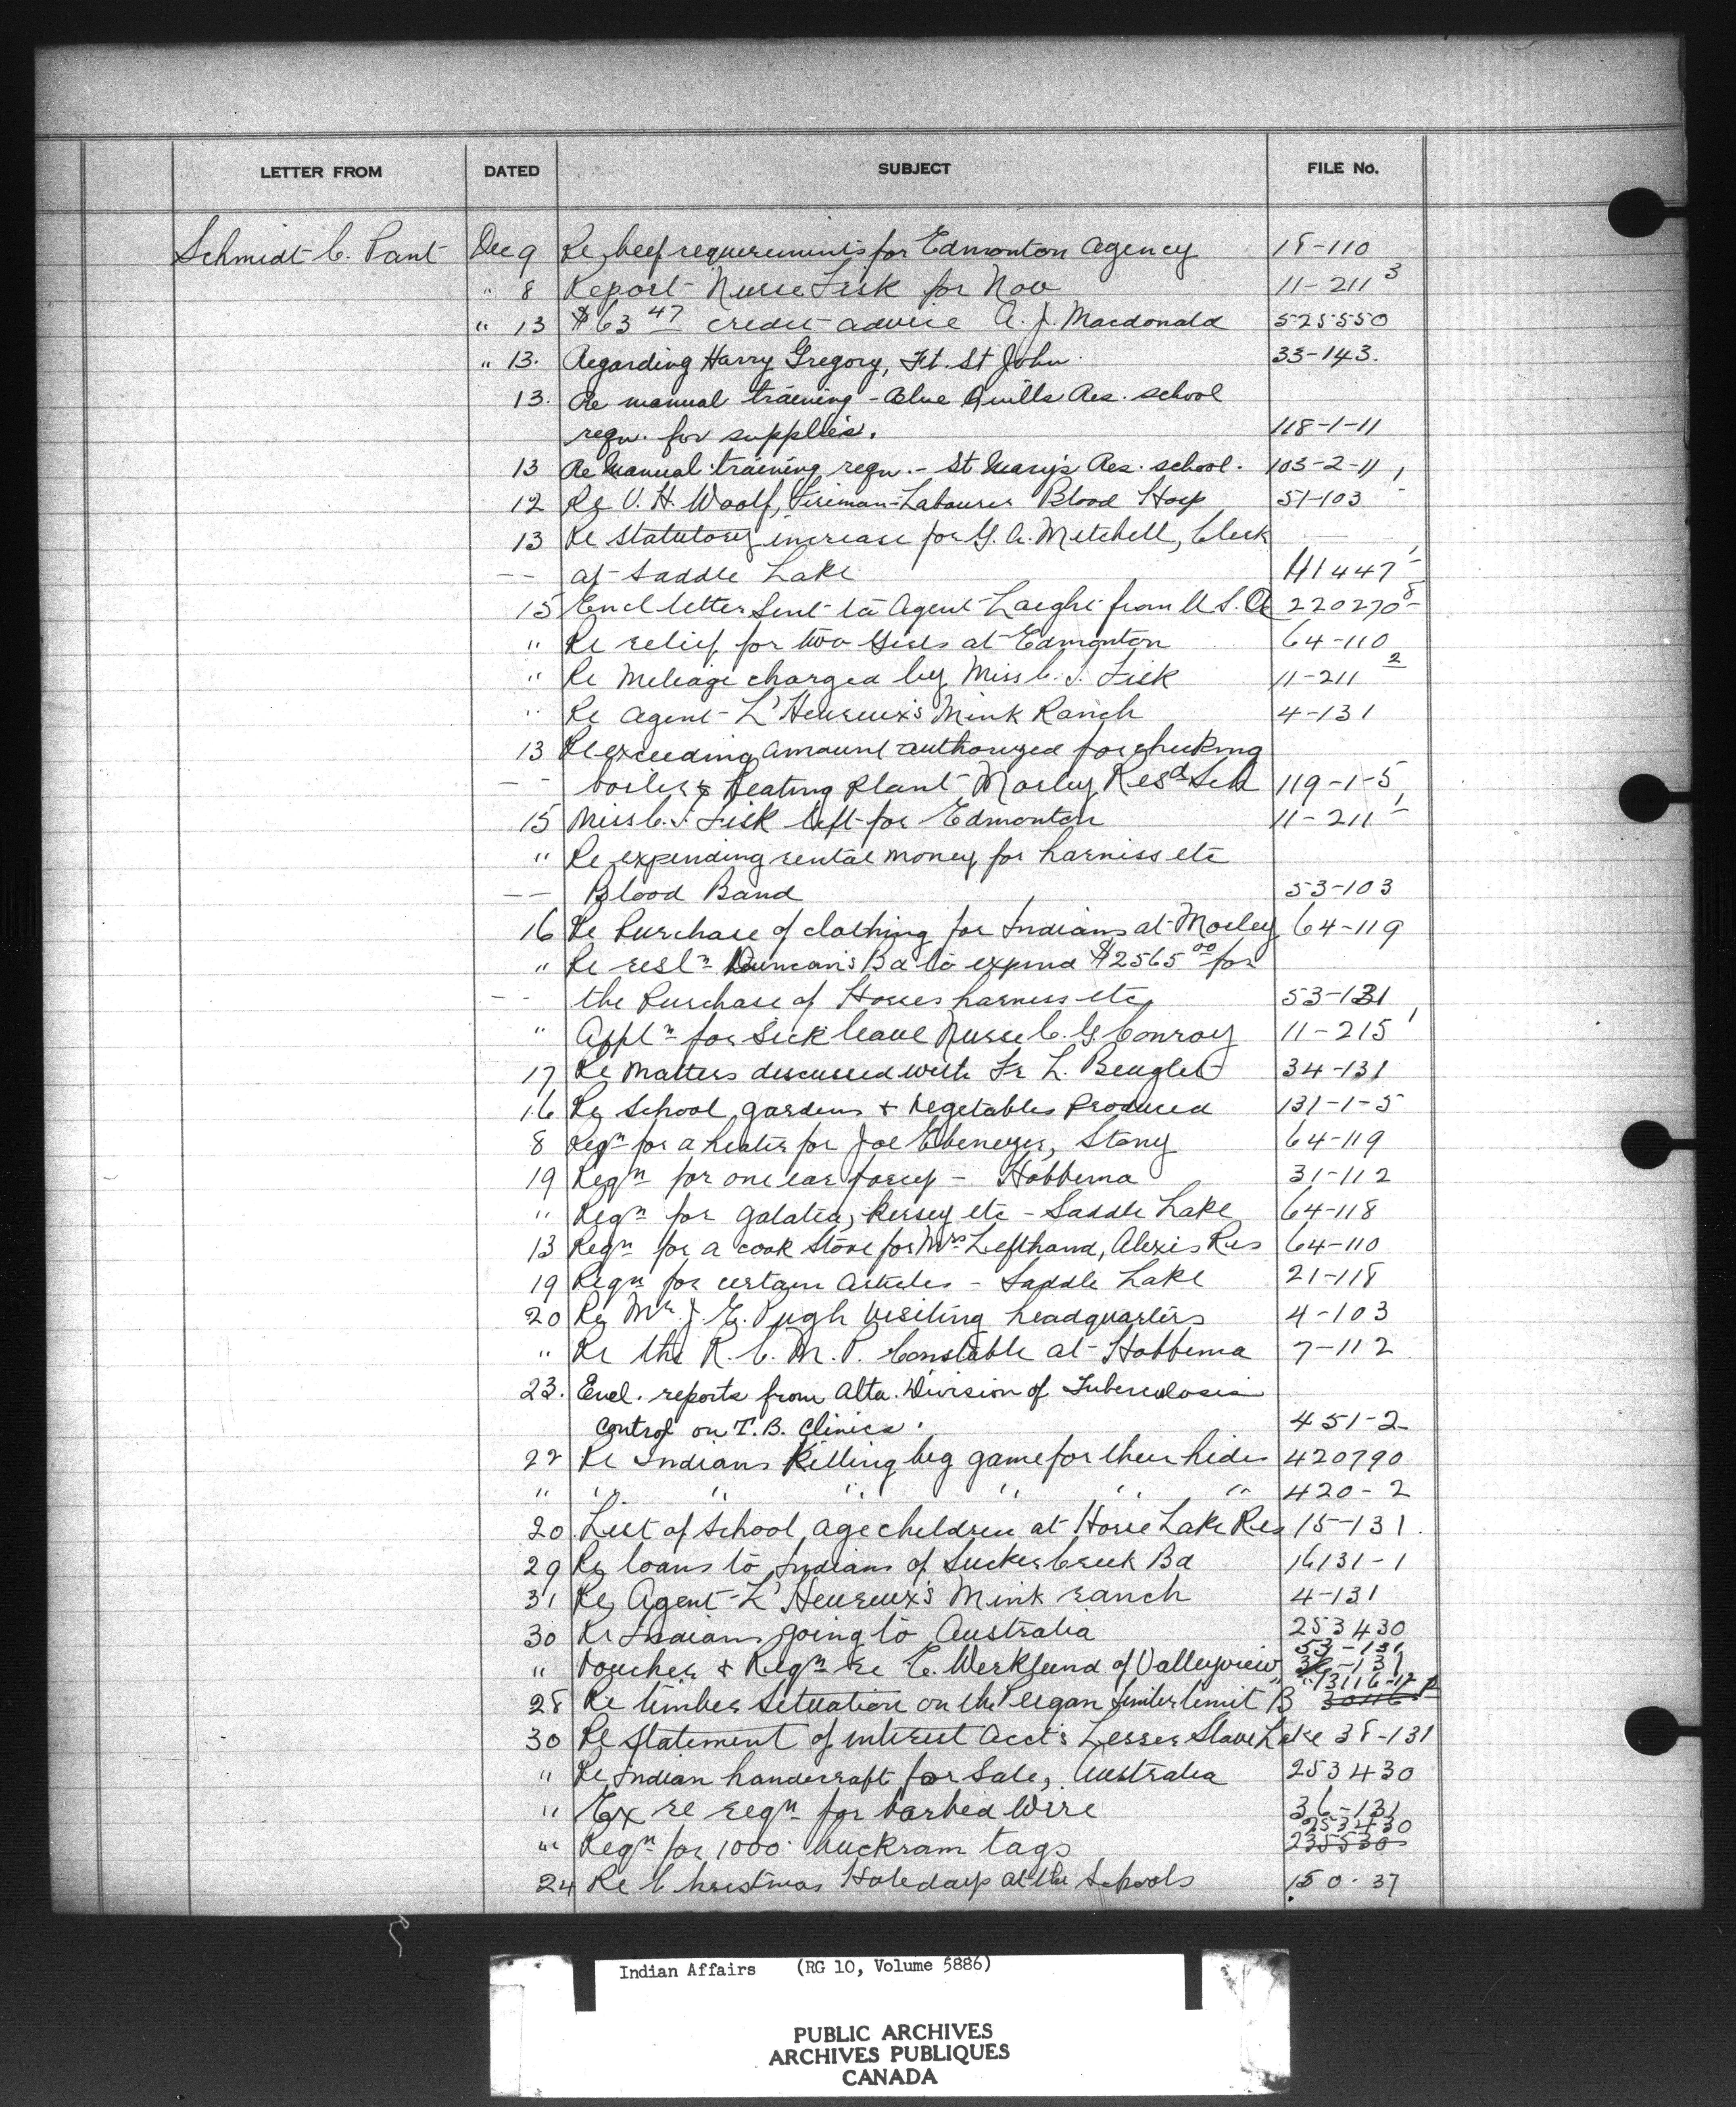 LETTER FROM DATED SUBJECT FILE No.
Schmidt C. Pant Dec 9 Re beef requirements for Edmonton Agency 18-110
" 8 Report Nurse Fisk for Nov 11-211 3
" 13 $63 47 credit advice A. J. Macdonald 525550
" 13. Regarding Harry Gregory, Ft. St John. 33-143.
13. Re manual training - Blue Quills Res. school
reqn. for supplies. 118-1-11
13 Re Manual training reqn. - St Mary's Res. school. 103-2-11
12 Re V. H. Woolf, Fireman-Labourer Blood Hosp 51-103
13 Re Statutory increase for G. A. Mitchell, Clerk
-- at Saddle Lake 41447
15 Encl letter sent to Agent from U.S.A 220270-8
" Re relief for two Girls at Edmonton 64-110
" Re Mileage charged by Miss C. I. Fisk 11-211 2
" Re Agent L'Heureux's Mink Ranch 4-131
13 Re exceeding amount authorized for checking
-- boiler & Heating Plant Morley Resd Sch 119-1-5
15 Miss C. I. Fisk left for Edmonton 11-211 1
" Re expending rental money for harness etc
-- Blood Band 53-103
16 Re Purchase of clothing for Indians at Morley 64-119
" Re resln Duncan's Bd to expend $2565 00 for
-- the Purchase of Horses harness etc, 53-131
" Appln for Sick leave Nurse C. G. Conroy 11-215 1
17 Re Matters discussed with Fr L. Beuglet 34-131
16 Re School gardens & vegetables Produced 131-1-5
8 Reqn for a heater for Joe Ebenezer, Stony 64-119
19 Reqn for one ear forcep - Hobbema 31-112
" Reqn for galatea, kersey etc - Saddle Lake 64-118
13 Reqn for a cook stove for Mrs Lefthand, Alexis Res 64-110
19 Reqn for certain articles - Saddle Lake 21-118
20 Re Mr. J. E. Pugh visiting headquarters 4-103
" Re the R.C.M.P. Constable at Hobbema 7-112
23. Encl. reports from Alta. Division of Tuberculosis
control on T.B. Clinics. 451-2
22 Re Indians killing big game for their hides 420790
" " " " " " " 420-2
20 List of School age children at Horse Lake Res 15-131.
29 Re loans to Indians of Sucker Creek Bd 16131-1
31 Re Agent L'Heureux's Mink ranch 4-131
30 Re Indians going to Australia 253430
53-131
" Voucher & Reqn re E. Werklund of Valleyview, -131
13116-17
28 Re timber situation on the Peigan timber limit B 30116
30 Re Statement of interest Acct's Lesser Slave Lake 38-131
" Re Indian handcraft for Sale, Australia 253430
" Ex re reqn for barbed wire 36-131
253430
" Reqn for 1000 buckram tags 235530
24 Re Christmas Holidays at the Schools 150-37
Indian Affairs (RG 10, Volume 5886)
PUBLIC ARCHIVES
ARCHIVES PUBLIQUES
CANADA